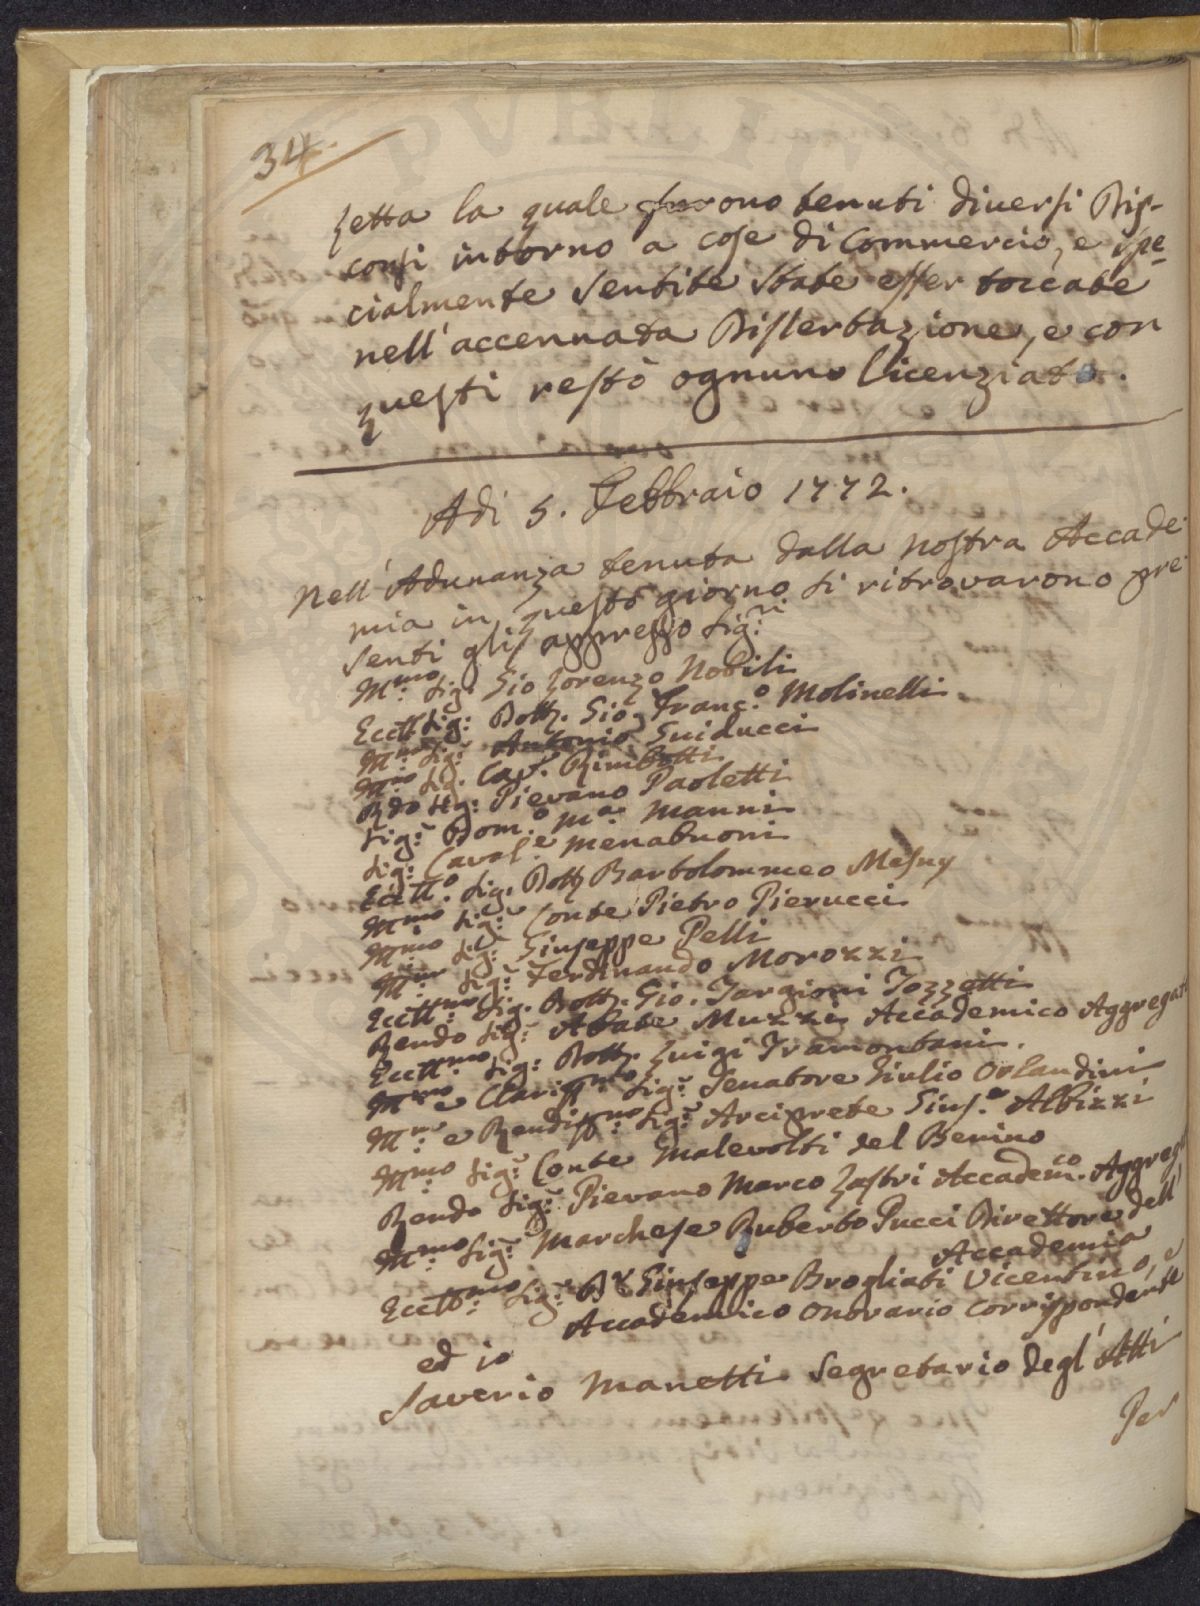 34.
Letta la quale furono tenuti diversi Dis-
corsi intorno a cose di Commercio, e spe-
cialmente sentite state esser toccate
nell'accennata Dissertazione, e con
questi restò ognuno licenziato.
Adi 5. Febbraio 1772.
Nell'Adunanza tenuta dalla nostra Accade-
mia in questo giorno si ritrovarono pre-
senti gli appresso Sig:ri
Ill:mo Sig: Gio Lorenzo Nobili
Ecctt Sig: Dott. Gio. Franc:o Molinelli
Ill:mo Sig: Antonio Guiducci
Ill:mo Sig. Cav:r Rimbotti
Rdo Sig: Pievano Paoletti
Sig:r Dom:o M:a Manni
Sig: Caval:e Menabuoni
Ecctt:o Sig. Dott Bartolommeo Mesny
Ill:mo Sig:r Conte Pietro Pierucci
Ill:mo Sig:r Giuseppe Pelli
Ill:mo Sig:r Ferdinando Morozzi
Ecctt:mo Sig. Dott. Gio. Targioni Tozzetti
Rendo Sig:r Abate Muzzi Accademico Aggregat
Ecctt:mo Sig: Dott. Luigi Tramontani.
Ill:mo e Clariss:mo Sig:r Senatore Giulio Orlandini
Ill:mo e Rendiss:mo Sig:r Arciprete Gius:e Albizzi
Ill:mo Sig:r Conte Malevolti del Benino
Rendo Sig:r Pievano Marco Lastri Accadem:co Aggreg
Ill:mo Sig:r Marchese Ruberto Pucci Direttore dell'
Accademia
Ecctt:mo Sig:r D:r Giuseppe Brogliati Vicentino, e
Accademico onorario corrispondente
ed io
Saverio Manetti Segretario degl'Atti
Per